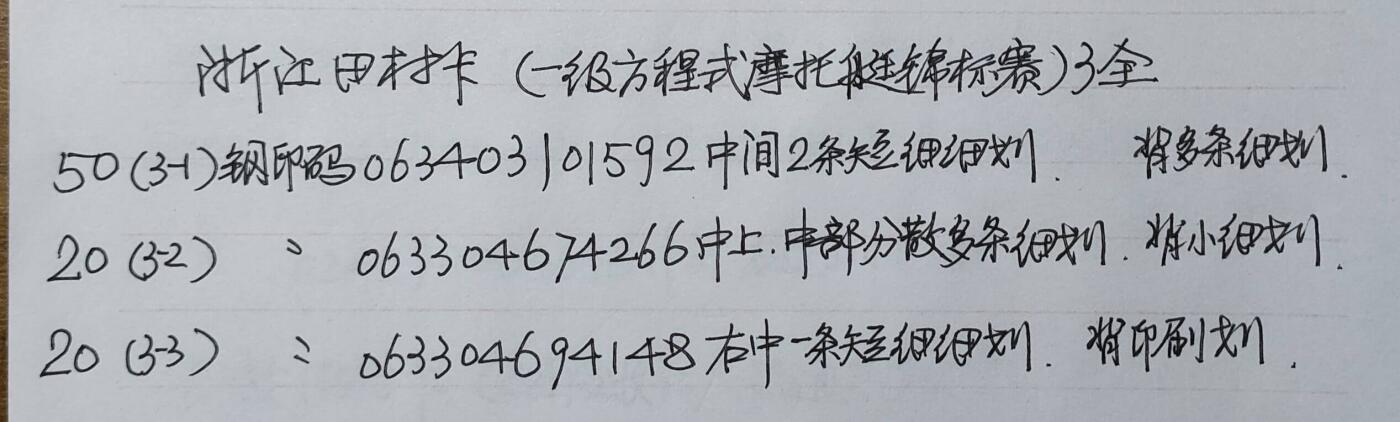 浙江田村卡(一级方程式摩托艇锦标赛)3全
50(3-1)钢印码063403101592中间2条短细细划. 背多条细划.
20(3-2) 〃 063304674266中上.中部分散多条细划. 背小细划.
20(3-3) 〃 063304694148右中一条短细细划. 背印刷划.